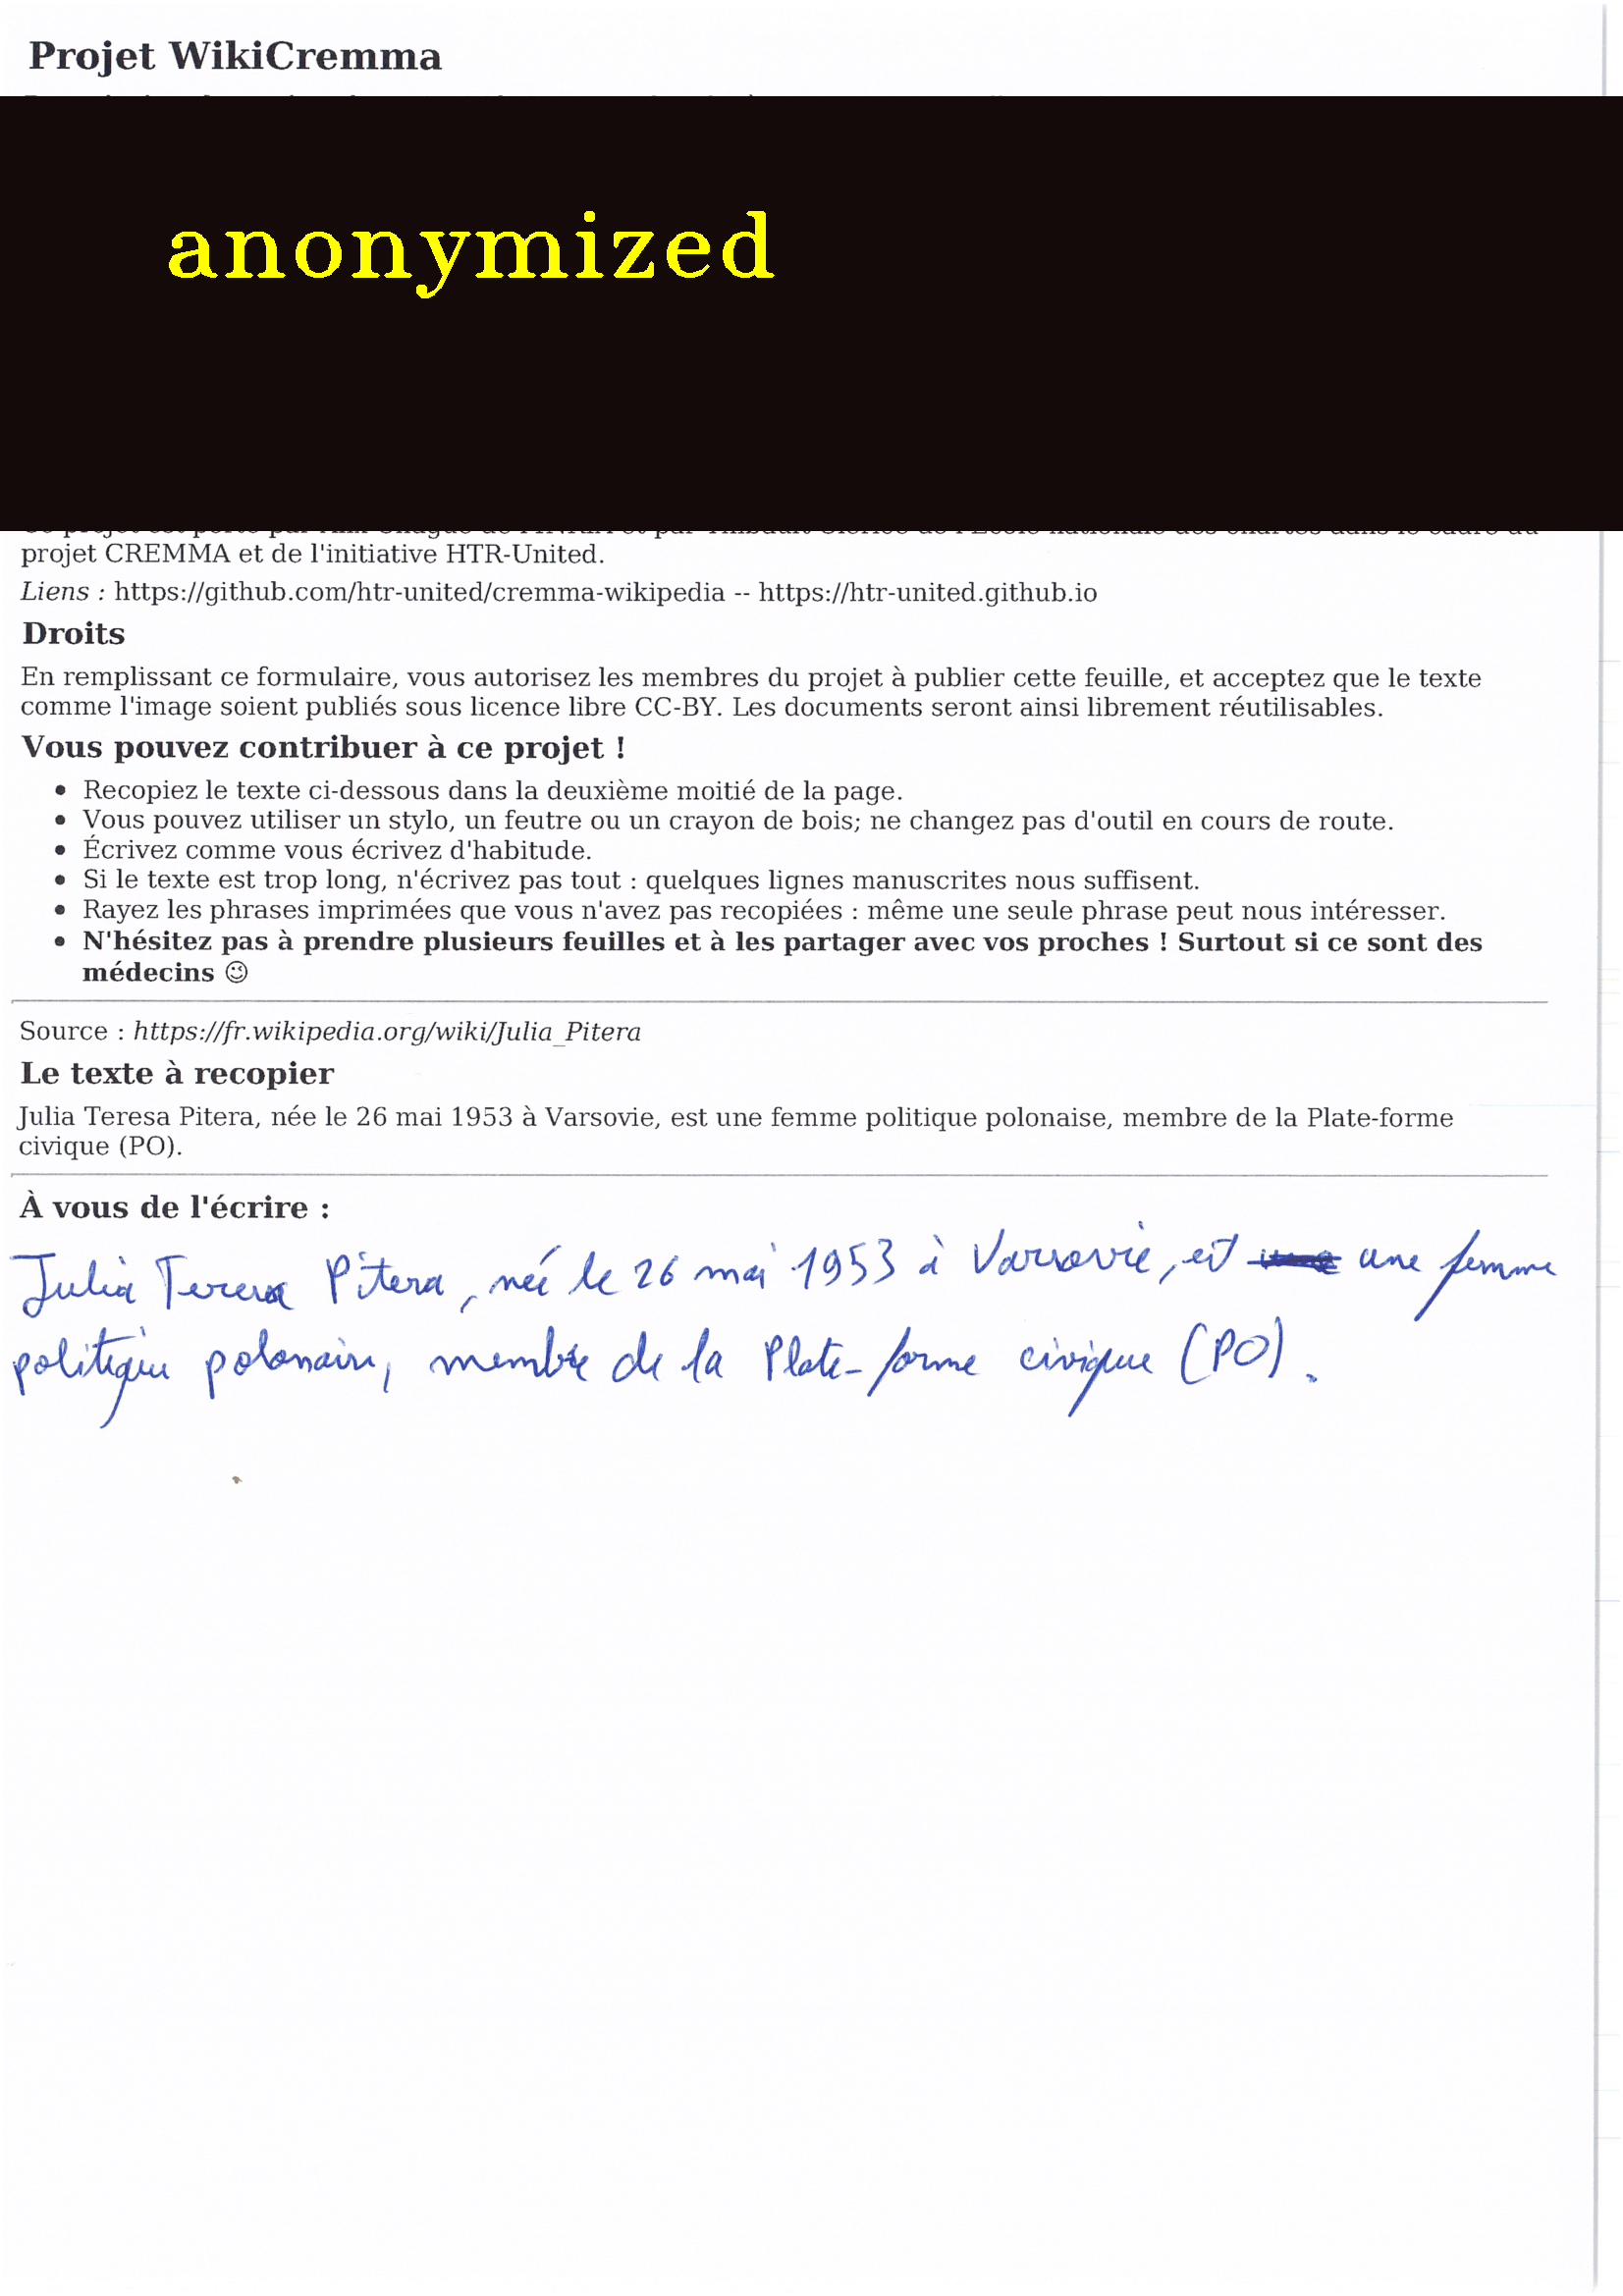 Projet WikiCremma
anonymized
projet CREMMA et de l'initiative HTR-United.
Liens : https://github.com/htr-united/cremma-wikipedia -- https://htr-united.github.io
Droits
En remplissant ce formulaire, vous autorisez les membres du projet à publier cette feuille, et acceptez que le texte
comme l'image soient publiés sous licence libre CC-BY. Les documents seront ainsi librement réutilisables.
Vous pouvez contribuer à ce projet !
• Recopiez le texte ci-dessous dans la deuxième moitié de la page.
• Vous pouvez utiliser un stylo, un feutre ou un crayon de bois; ne changez pas d'outil en cours de route.
• Écrivez comme vous écrivez d'habitude.
• Si le texte est trop long, n'écrivez pas tout : quelques lignes manuscrites nous suffisent.
• Rayez les phrases imprimées que vous n'avez pas recopiées : même une seule phrase peut nous intéresser.
• N'hésitez pas à prendre plusieurs feuilles et à les partager avec vos proches ! Surtout si ce sont des
médecins ☺
Source : https://fr.wikipedia.org/wiki/Julia_Pitera
Le texte à recopier
Julia Teresa Pitera, née le 26 mai 1953 à Varsovie, est une femme politique polonaise, membre de la Plate-forme
civique (PO).
À vous de l'écrire :
Julia Teresa Pitera, née le 26 mai 1953 à Varsovie, est une femme
politique polonaise, membre de la Plate-forme civique (PO).